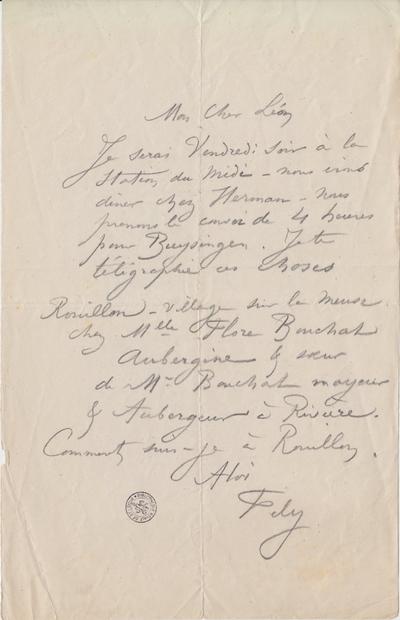 Mon Cher Léon
Je serai Vendredi soir à la
Station du Midi – nous irons
diner chez Herman – nous
prenons le convoi de 4 heures
pour Buysingen. Je te
télégraphie ces choses
Rouillon – village sur la Meuse
chez Mlle Flore Bouchat
Aubergine & sœur
de Mr Bouchat mayeur
& Aubergeur à Rivière.
Comment suis-je à Rouillon.
Fély